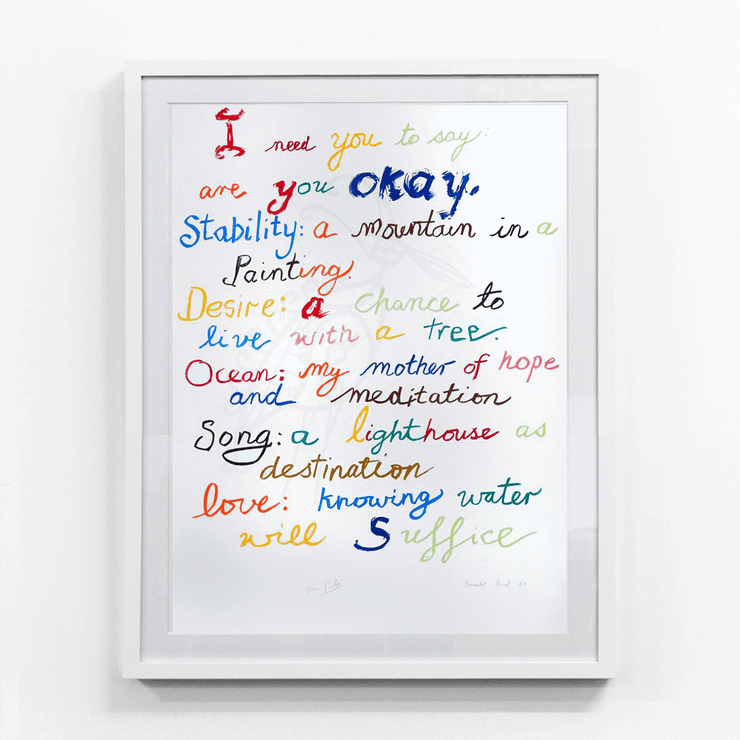 I need you to say:
are you okay.
Stability: a mountain in a
Painting.
Desire: a chance to
live with a tree.
Ocean: my mother of hope
and meditation
Song: a lighthouse as
destination
love: knowing water
will Suffice